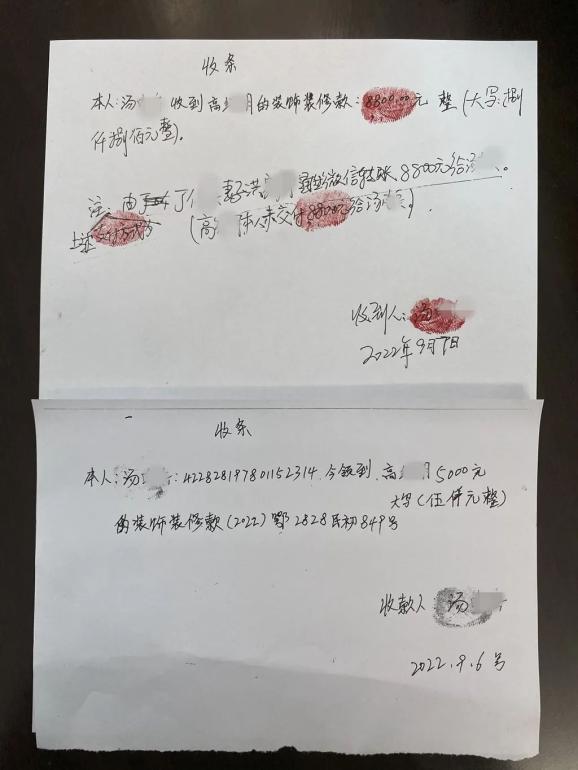 收条
本人:汤 收到高 月的装饰装修款:8800.00元 整(大写:捌
仟捌佰元整)。
注:由 微信转账8800元给汤 。
上述 (高 本人未交付8800元给汤 )
收到人:汤
2022年9月7日
收条
本人:汤 :422828197801152314 今领到 高 月5000元
大写(伍仟元整)
的装饰装修款(2022)鄂2828民初849号
收款人 汤
2022.9.6号